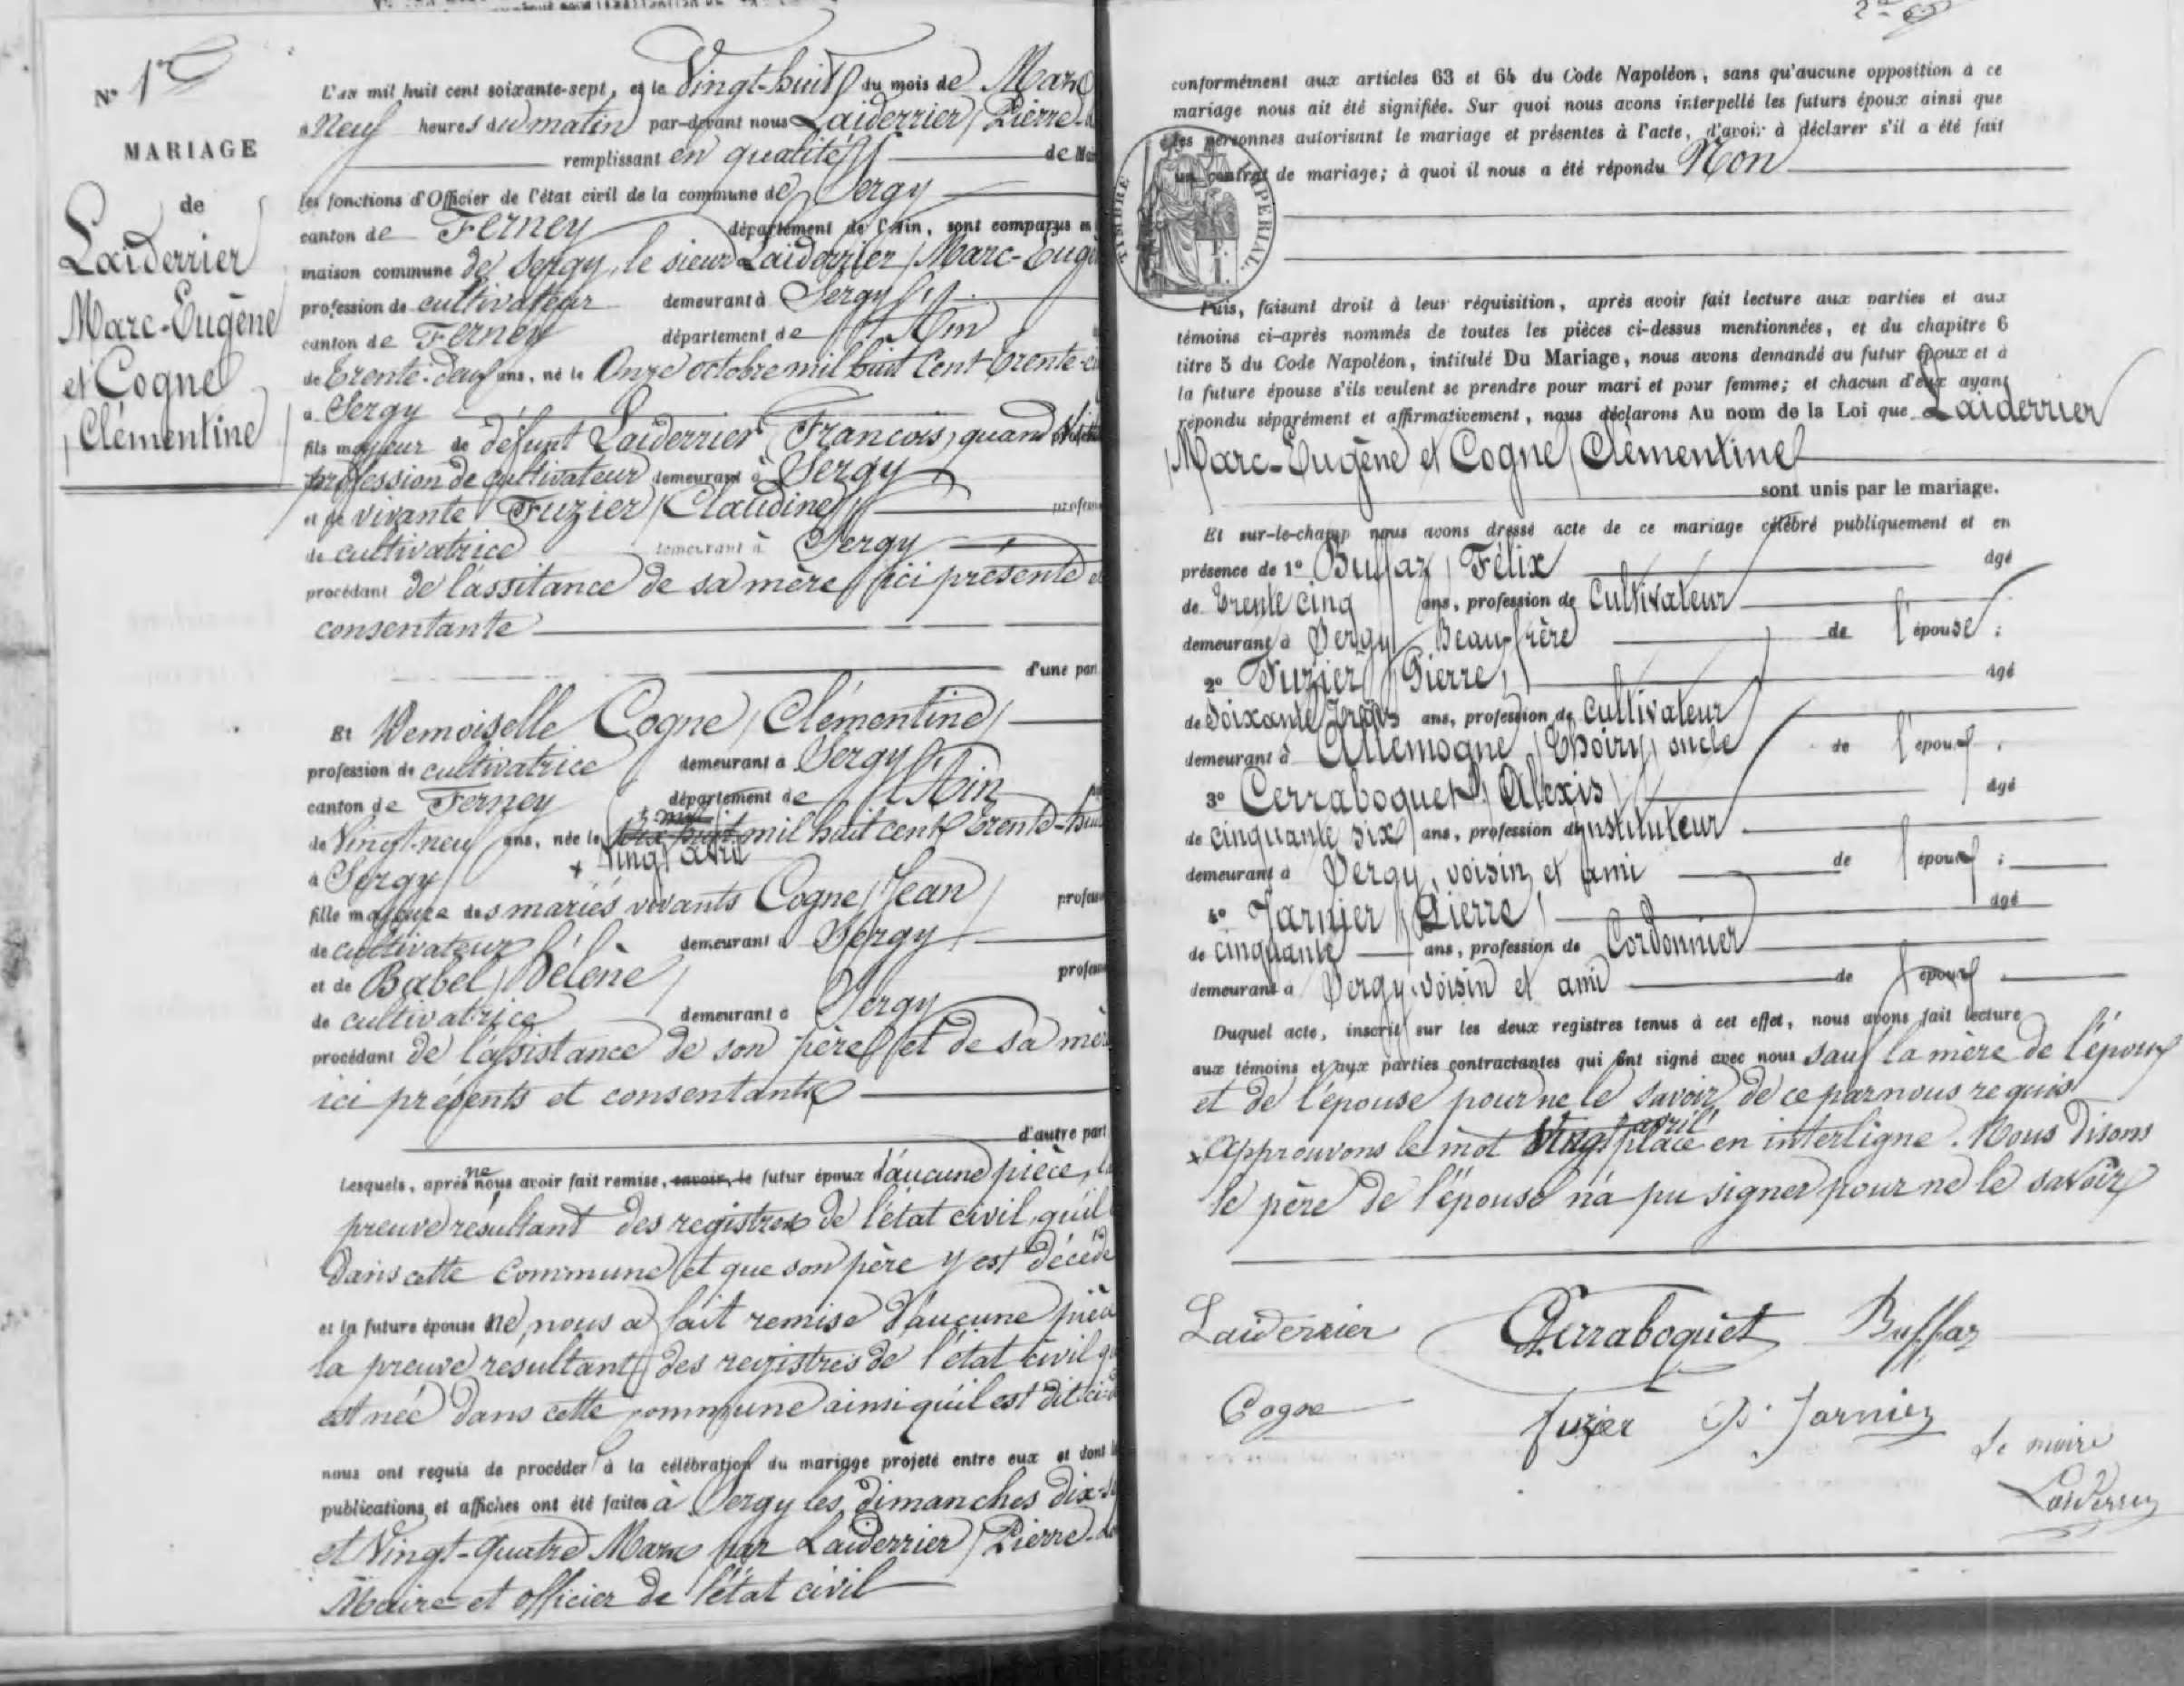 N° 1er
MARIAGE
de
Laiderrier
Marc-Eugène
et Cogne
Clémentine
L'an mil huit cent soixante-sept, et le Vingt-huit du mois de Mars
à Neuf heures du matin par-devant nous Laiderrier Pierre
remplissant en qualité de
les fonctions d'Officier de l'état civil de la commune de Sergy
canton de Ferney département de l'Ain, sont comparus en
maison commune de Sergy, le sieur Laiderrier Marc-Eugè
profession de cultivateur demeurant à Sergy
canton de Ferney département de l'Ain
de trente-deux ans, né le Onze octobre mil huit cent trente-
à Sergy
fils majeur de défunt Laiderrier François, quand
profession de cultivateur demeurant à Sergy
et de vivante Fuzier Claudine profess
de cultivatrice demeurant à Sergy
procédant de l'assitance de sa mère ici présente et
consentante
d'une part
Et Demoiselle Cogne Clémentine
profession de cultivatrice demeurant à Sergy
canton de Ferney département de l'Ain
de Vingt-neuf ans, née le mil huit cent trente-hui
+ Vingt avril
à Sergy
fille majeure des mariés vivants Cogne Jean profess
de cultivateur demeurant à Sergy
et de Babel Hélène profess
de cultivatrice demeurant à Sergy
procédant de l'assistance de son père et de sa mèr
ici présents et consentants
d'autre part
Lesquels, après ne nous avoir fait remise, savoir, le futur époux d'aucune pièce, la
preuve résultant des registres de l'état civil, qu'il
dans cette commune et que son père y est décédé
et la future épouse ne nous a fait remise d'aucune pièce
la preuve résultant des registres de l'état civil qu
est née dans cette commune ainsi qu'il est dit ci-d
nous ont requis de procéder à la célébration du mariage projeté entre eux et dont l
publications et affiches ont été faites à Sergy les dimanches dix-
et Vingt-quatre Mars par Laiderrier Pierre
Maire et officier de l'état civil
conformément aux articles 63 et 64 du Code Napoléon, sans qu'aucune opposition à ce
mariage nous ait été signifiée. Sur quoi nous avons interpellé les futurs époux ainsi que
les personnes autorisant le mariage et présentes à l'acte, d'avoir à déclarer s'il a été fait
un contrat de mariage; à quoi il nous a été répondu Non
TIMBRE IMPERIAL.
Puis, faisant droit à leur réquisition, après avoir fait lecture aux parties et aux
témoins ci-après nommés de toutes les pièces ci-dessus mentionnées, et du chapitre 6
titre 5 du Code Napoléon, intitulé Du Mariage, nous avons demandé au futur époux et à
la future épouse s'ils veulent se prendre pour mari et pour femme; et chacun d'eux ayant
répondu séparément et affirmativement, nous déclarons Au nom de la Loi que Laiderrier
Marc-Eugène et Cogne Clémentine
sont unis par le mariage.
Et sur-le-champ nous avons dressé acte de ce mariage célébré publiquement et en
présence de 1° Buffaz Félix agé
de trente cinq ans, profession de Cultivateur
demeurant à Sergy Beau-frère de l'épouse;
2° Fuzier Pierre, agé
de Soixante trois ans, profession de Cultivateur
demeurant à Allemogne, Thoiry, oncle de l'époux
3° Cerraboquet Alexis agé
de cinquante six ans, profession d'instituteur
demeurant à Sergy, voisin et ami de l'époux;
4° Jarnier Pierre agé
de cinquante ans, profession de Cordonnier
demeurant à Sergy voisin et ami de l'époux
Duquel acte, inscrit sur les deux registres tenus à cet effet, nous avons fait lecture
aux témoins et aux parties contractantes qui ont signé avec nous sauf la mère de l'époux
et de l'épouse pour ne le savoir de ce par nous requis
x Approuvons le mot Vingt avril placé en interligne. Nous disons
le père de l'épouse n'a pu signer pour ne le savoir
Laiderrier Cerraboquet Buffaz
Cogne fuzier P. Jarnier
Le maire
Laiderrier